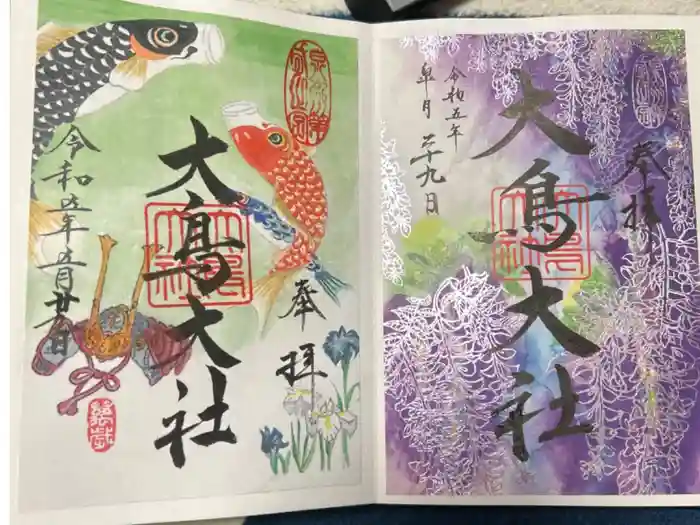 奉拝
大鳥大社
令和五年
皐月二十九日
奉拝
大鳥大社
令和五年五月廿九日